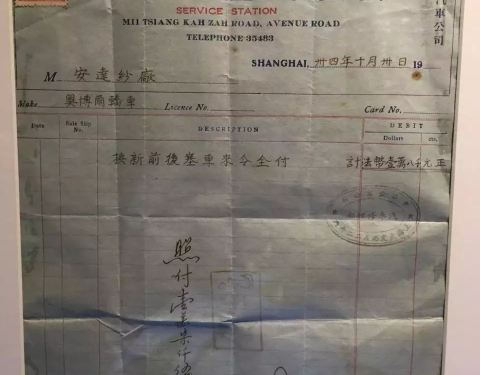 汽車公司
SERVICE STATION
M11 TSIANG KAH ZAH ROAD, AVENUE ROAD
TELEPHONE 35483
SHANGHAI, 卅四年十月卅日 19
M 安達紗廠
Make 奧博爾轎車 Licence No. Card No.
Date Sale Slip No. DESCRIPTION DEBIT
Dollars cts.
換新前後塞車來令全付 計法幣壹萬八千元正
照付壹萬柒仟伍